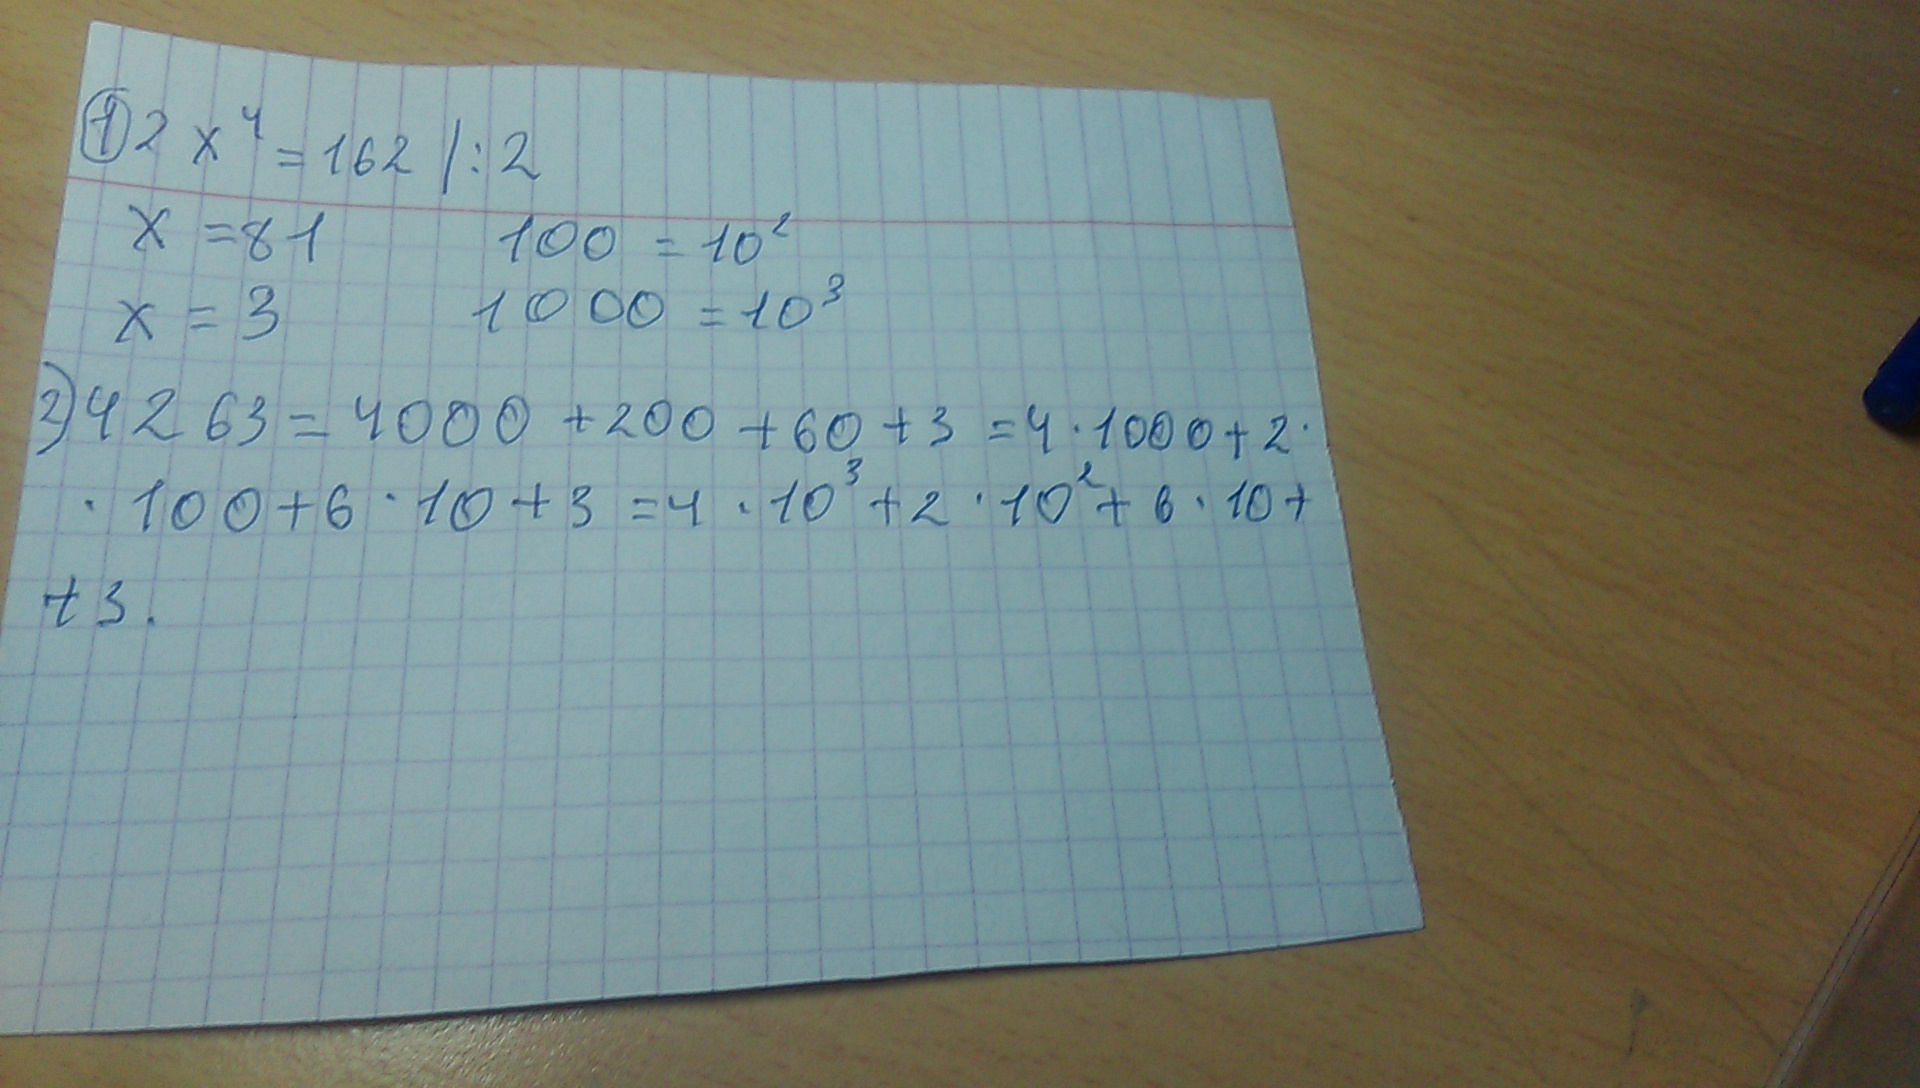 ① 2 x⁴ = 162 /:2
x = 81 100 = 10²
x = 3 1000 = 10³
2) 4263 = 4000 + 200 + 60 + 3 = 4 · 1000 + 2 ·
· 100 + 6 · 10 + 3 = 4 · 10³ + 2 · 10² + 6 · 10 +
+ 3.